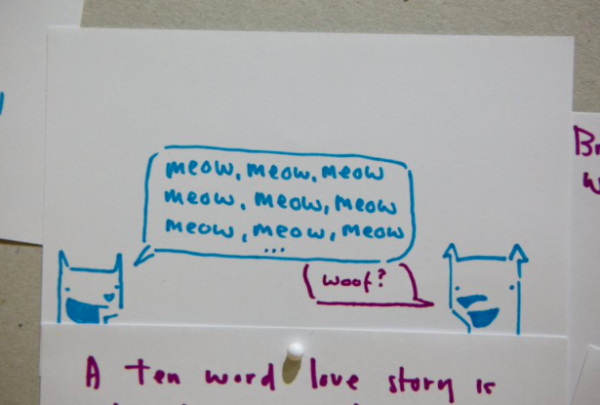 meow, meow, meow
meow, meow, meow
meow, meow, meow
...
woof?
A ten word love story is